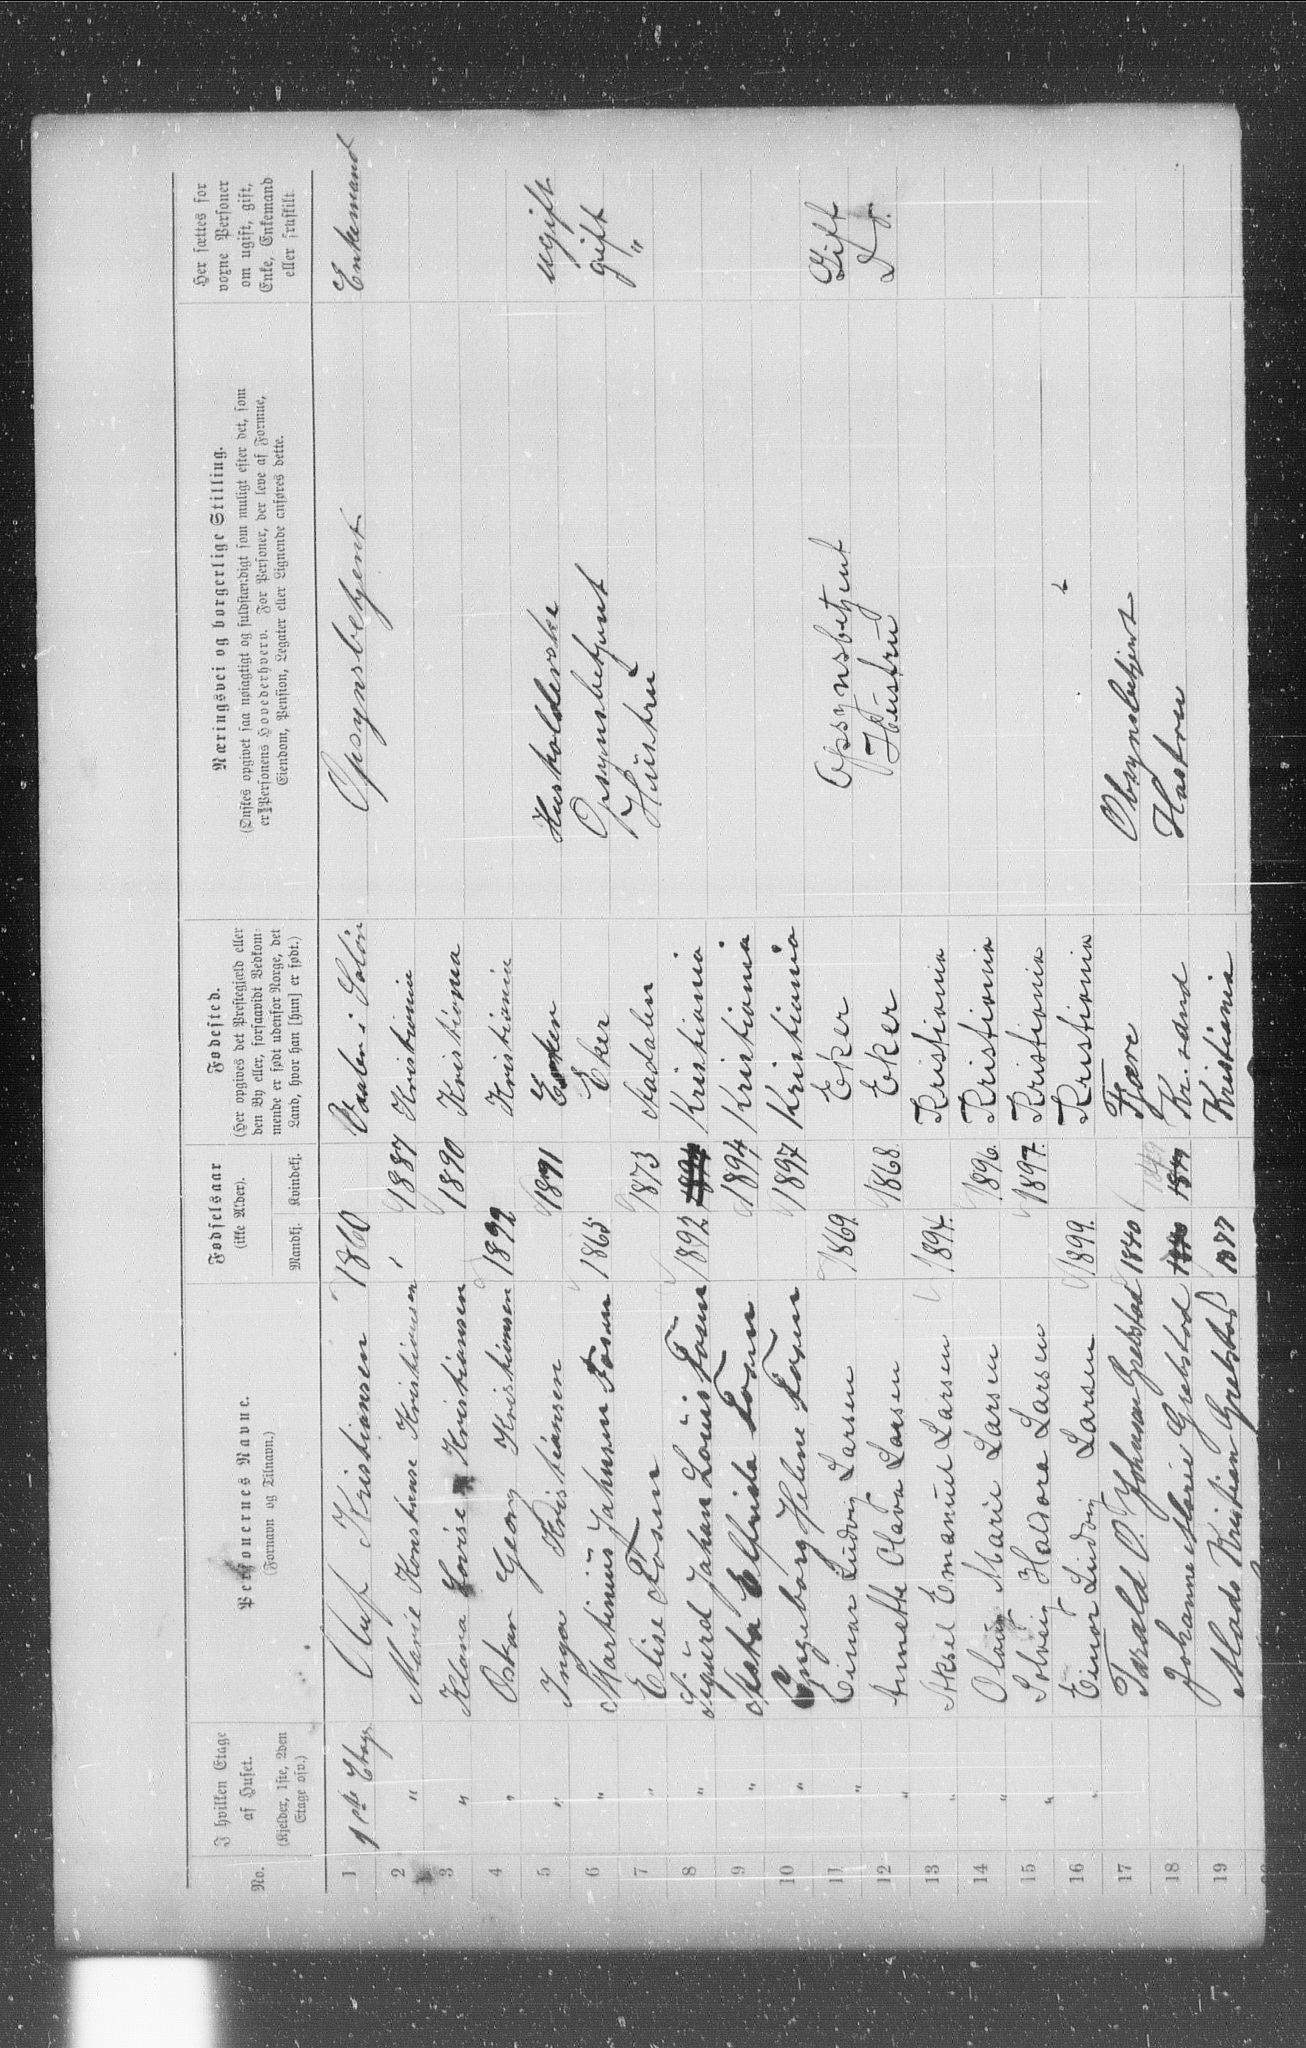 No.
I hvilken Etage af Huset.
(Kjelder, 1ste, 2den Etage osv.)
Personernes Navne.
(Fornavn og Tilnavn.)
Fødselsaar
(ikke Alder).
Mandkj. Kvindekj.
Fødested.
(Her opgives det Prestegjæld eller
den By eller, forsaavidt Vedkom-
mende er født udenfor Norge, det
Land, hvor han [hun] er født.)
Næringsvei og borgerlige Stilling.
(Ønskes opgivet saa nøiagtigt og fuldstændigt som muligt efter det, som
er Personens Hovederhverv. For Personer, der leve af Formue,
Eiendom, Pension, Legater eller Lignende anføres dette.
Her sættes for
voxne Personer
om ugift, gift,
Enke, Enkemand
eller fraskilt
1 1ste Etage Oluf Kristiansen 1860 Vaaler i Solör Opsynsbetjent Enkemand
2 " Marie Konstanse Kristiansen 1887 Kristiania
3 " Klara Lovise Kristiansen 1890 Kristiania
4 " Oskar Georg Kristiansen 1892 Kristiania
5 " Inga Kristiansen 1871 Husholderske ugift
6 " Martinius Johansen Fosen 1865 Eker Opsynsbetjent gift
7 " Elise Fosen 1873 Aadalen Hustru "
8 " Sigurd Johan Louis Fosen 1892 Kristiania
9 " Asta Elfrida Fosen 1894 Kristiania
10 " Ingeborg Helene Fosen 1897 Kristiania
11 " Einar Ludvig Larsen 1869. Eker Opsynsbetjent Gift
12 " Annette Olava Larsen 1868. Eker Hustru D.o.
13 " Aksel Emanuel Larsen 1894. Kristiania
14 " Olaug Marie Larsen 1896. Kristiania
15 " Solveig Haldora Larsen 1897. Kristiania
16 " Einar Ludvig Larsen 1899. Kristiania
17 Tarald O. Johnsen Grelstad 1840 Tjære Obsynsbetjent
18 Johanne Marie Grelstad 1849 Kr.sand Hustru
19 Mads Kristian Grelstad 1877 Kristiania